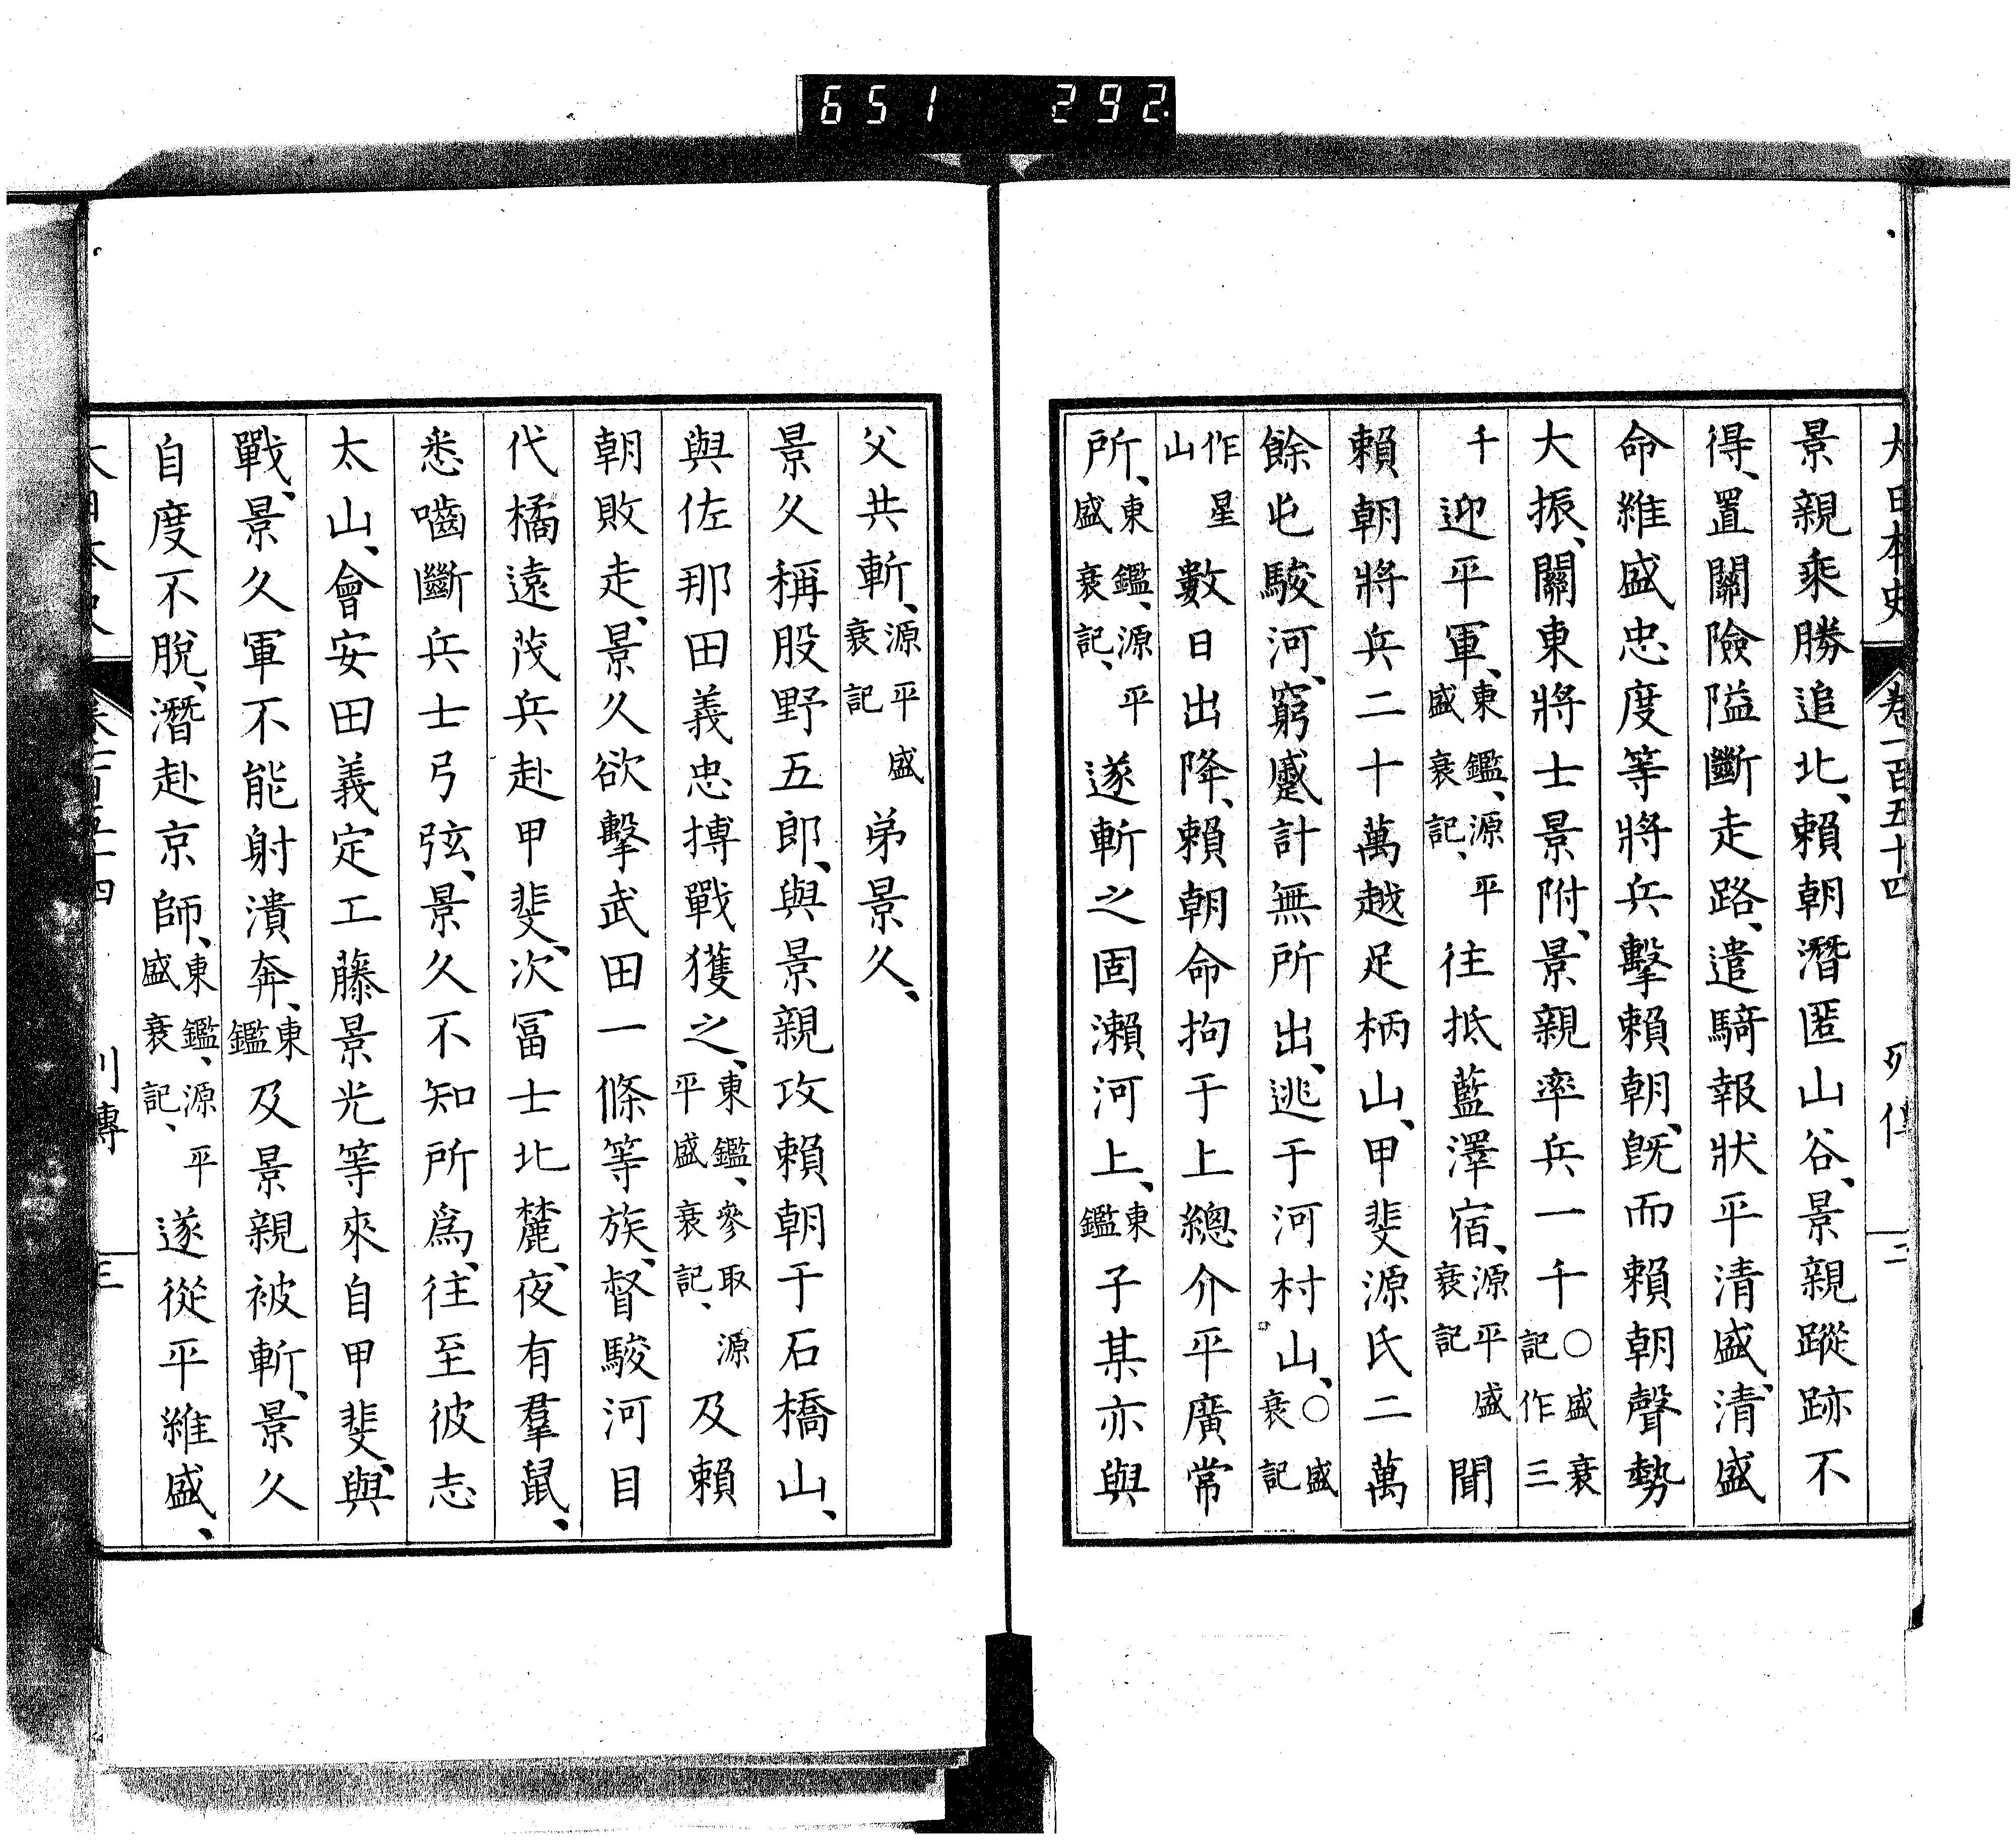 651 292
大日本史 卷一百五十四 列傳 三
景親乘勝追北、賴朝潛匿山谷、景親蹤跡不
得、置關險隘斷走路、遣騎報狀平清盛、清盛
命維盛忠度等將兵擊賴朝、旣而賴朝聲勢
大振、關東將士景附、景親率兵一千○盛衰記作三
千迎平軍、東鑑、源平盛衰記、往抵藍澤宿、源平盛衰記聞
賴朝將兵二十萬越足柄山、甲斐源氏二萬
餘屯駿河、窮蹙計無所出、逃于河村山、○盛衰記
作星山數日出降、賴朝命拘于上總介平廣常
所、東鑑、源平盛衰記、遂斬之固瀨河上、東鑑子某亦與
父共斬、源平盛衰記弟景久、
景久稱股野五郎、與景親攻賴朝于石橋山、
與佐那田義忠搏戰獲之、東鑑、參取源平盛衰記、及賴
朝敗走、景久欲擊武田一條等族、督駿河目
代橘遠茂兵赴甲斐、次冨士北麓、夜有羣鼠、
悉嚙斷兵士弓弦、景久不知所爲、往至彼志
太山、會安田義定工藤景光等來自甲斐、與
戰、景久軍不能射潰奔、東鑑及景親被斬、景久
自度不脫、潛赴京師、東鑑、源平盛衰記、遂從平維盛、
大日本史 卷一百五十四 列傳 三